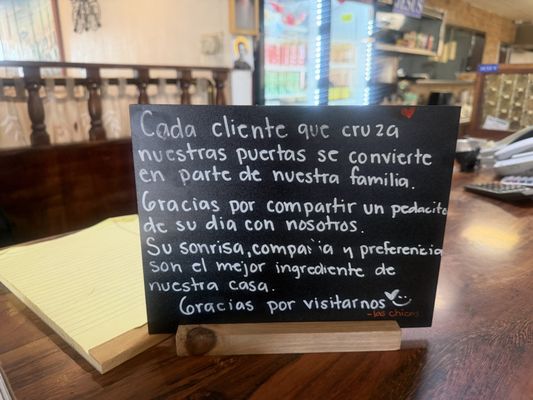 Cada cliente que cruza
nuestras puertas se convierte
en parte de nuestra familia.
Gracias por compartir un pedacito
de su dia con nosotros.
Su sonrisa, compañia y preferencia
son el mejor ingrediente de
nuestra casa.
Gracias por visitarnos
-las chicas